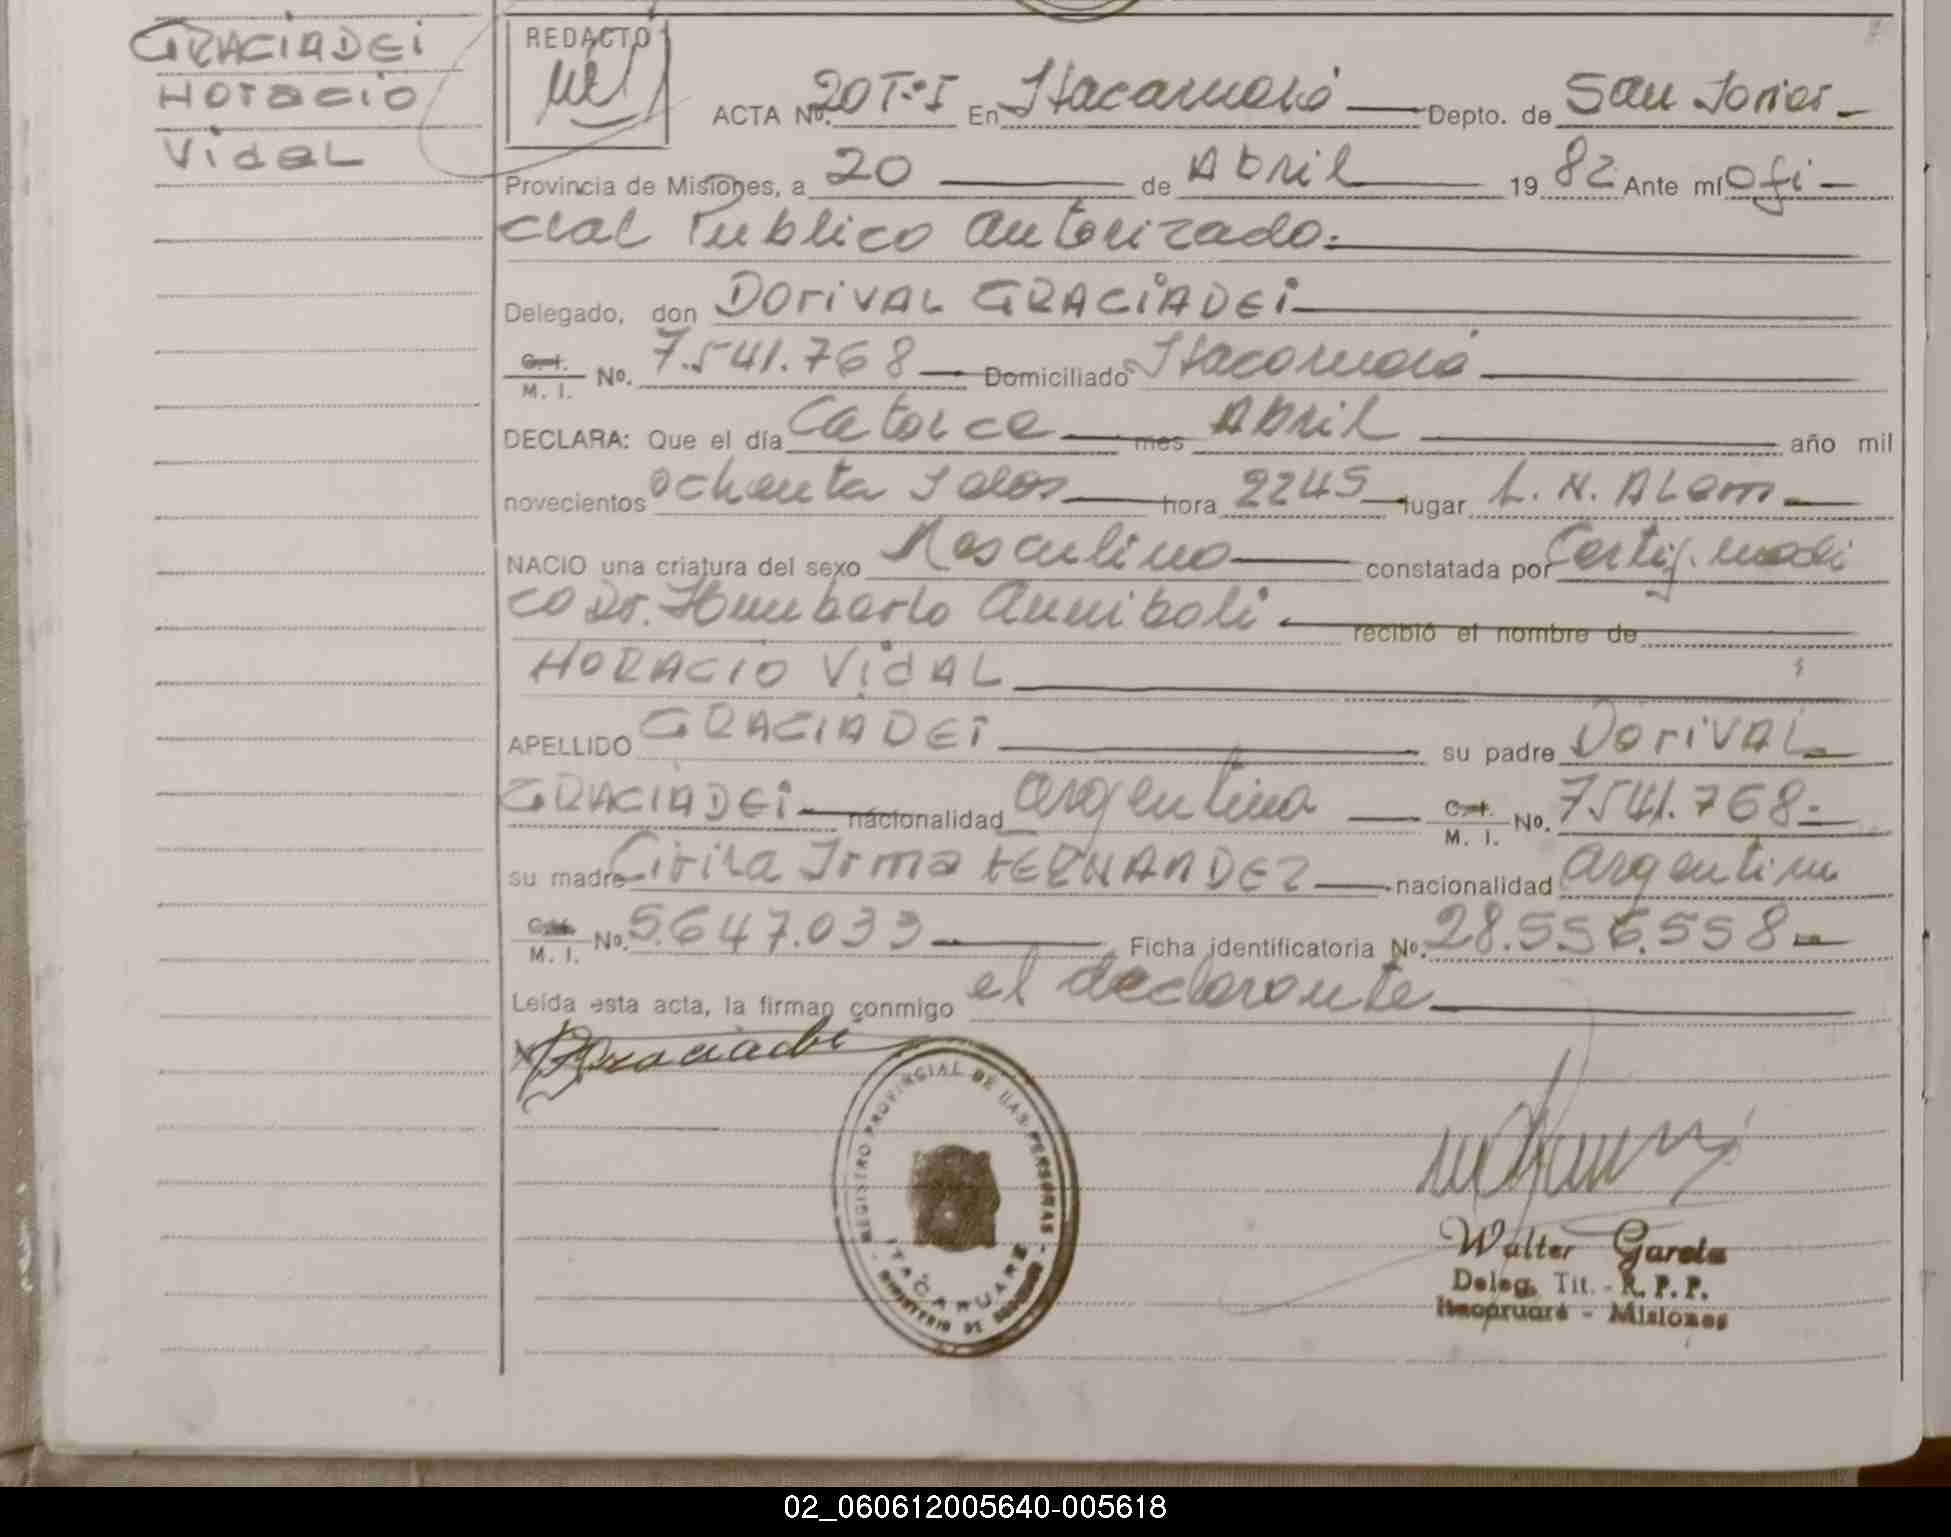 GRACIADEI
HORACIO
VidaL
REDACTO
ACTA Nº. 20 T.º I En Itacaruaré Depto. de San Javier
Provincia de Misiones, a 20 de Abril 19 82 Ante mí Ofi
cial Publico Autorizado.
Delegado, don DORIVAL GRACIADEI
C. I. / M. I. Nº. 7.541.768 Domiciliado Itacaruaré
DECLARA: Que el día Catorce mes Abril año mil
novecientos ochenta y dos hora 2245 lugar L. N. ALem
NACIO una criatura del sexo Masculino constatada por Certif. medi
co Dr. Humberto Anniboli recibió el nombre de
HORACIO VidAL
APELLIDO GRACIADEI su padre DoriVAL
GRACIADEI nacionalidad argentina C. I. / M. I. Nº. 7541.768
su madre Irma FERNANDEZ nacionalidad argentina
M. I. Nº. 5.647.033 Ficha identificatoria Nº. 28.556.558
Leída esta acta, la firman conmigo el declarante
REGISTRO PROVINCIAL DE LAS PERSONAS
ITACARUARE
MINISTERIO DE GOBIERNO
Walter García
Deleg. Tit. - R. P. P.
Itacaruaré - Misiones
02_060612005640-005618